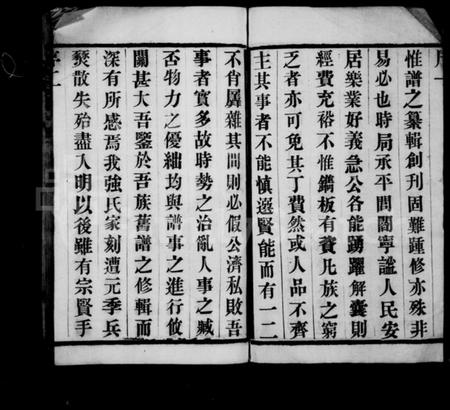 惟譜之纂輯創刊固難踵修亦殊非
易必也時局承平閭閻寧謐人民安
居樂業好義急公各能踴躍解囊則
經費充裕不惟鐫板有賚凡族之窮
乏者亦可免其丁費然或人品不齊
主其事者不能愼選賢能而有一二
不肖厲雜其間則必假公濟私敗吾
事者實多故時勢之治亂人事之臧
否物力之優絀均與譜事之進行攸
關甚大吾鑒於吾族舊譜之修輯而
深有所感焉我強氏家刻遭元季兵
燹散失殆盡入明以後雖有宗賢手